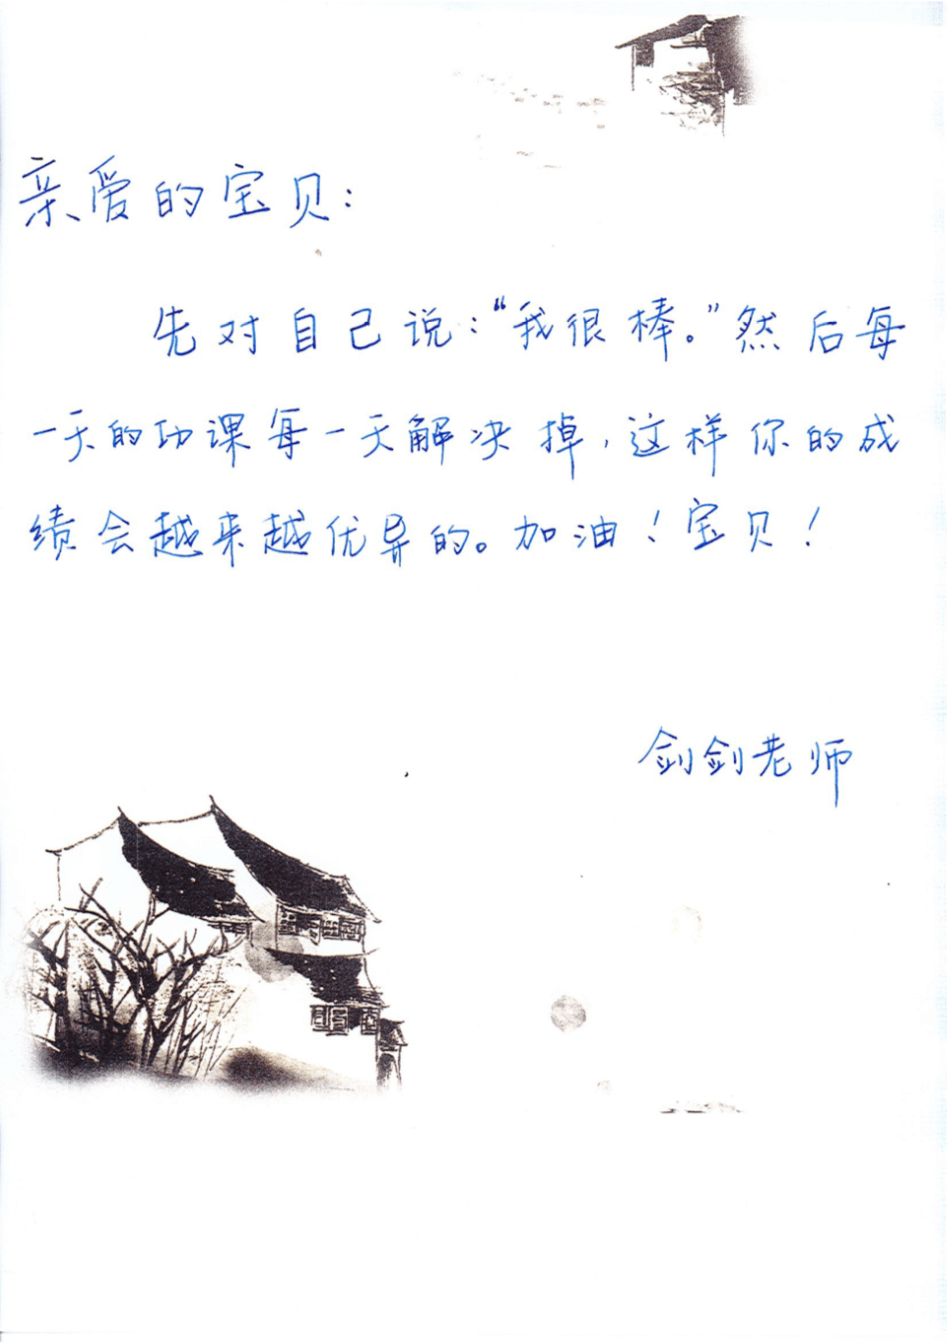 亲爱的宝贝：
先对自己说：“我很棒。”然后每
一天的功课每一天解决掉，这样你的成
绩会越来越优异的。加油！宝贝！
剑剑老师